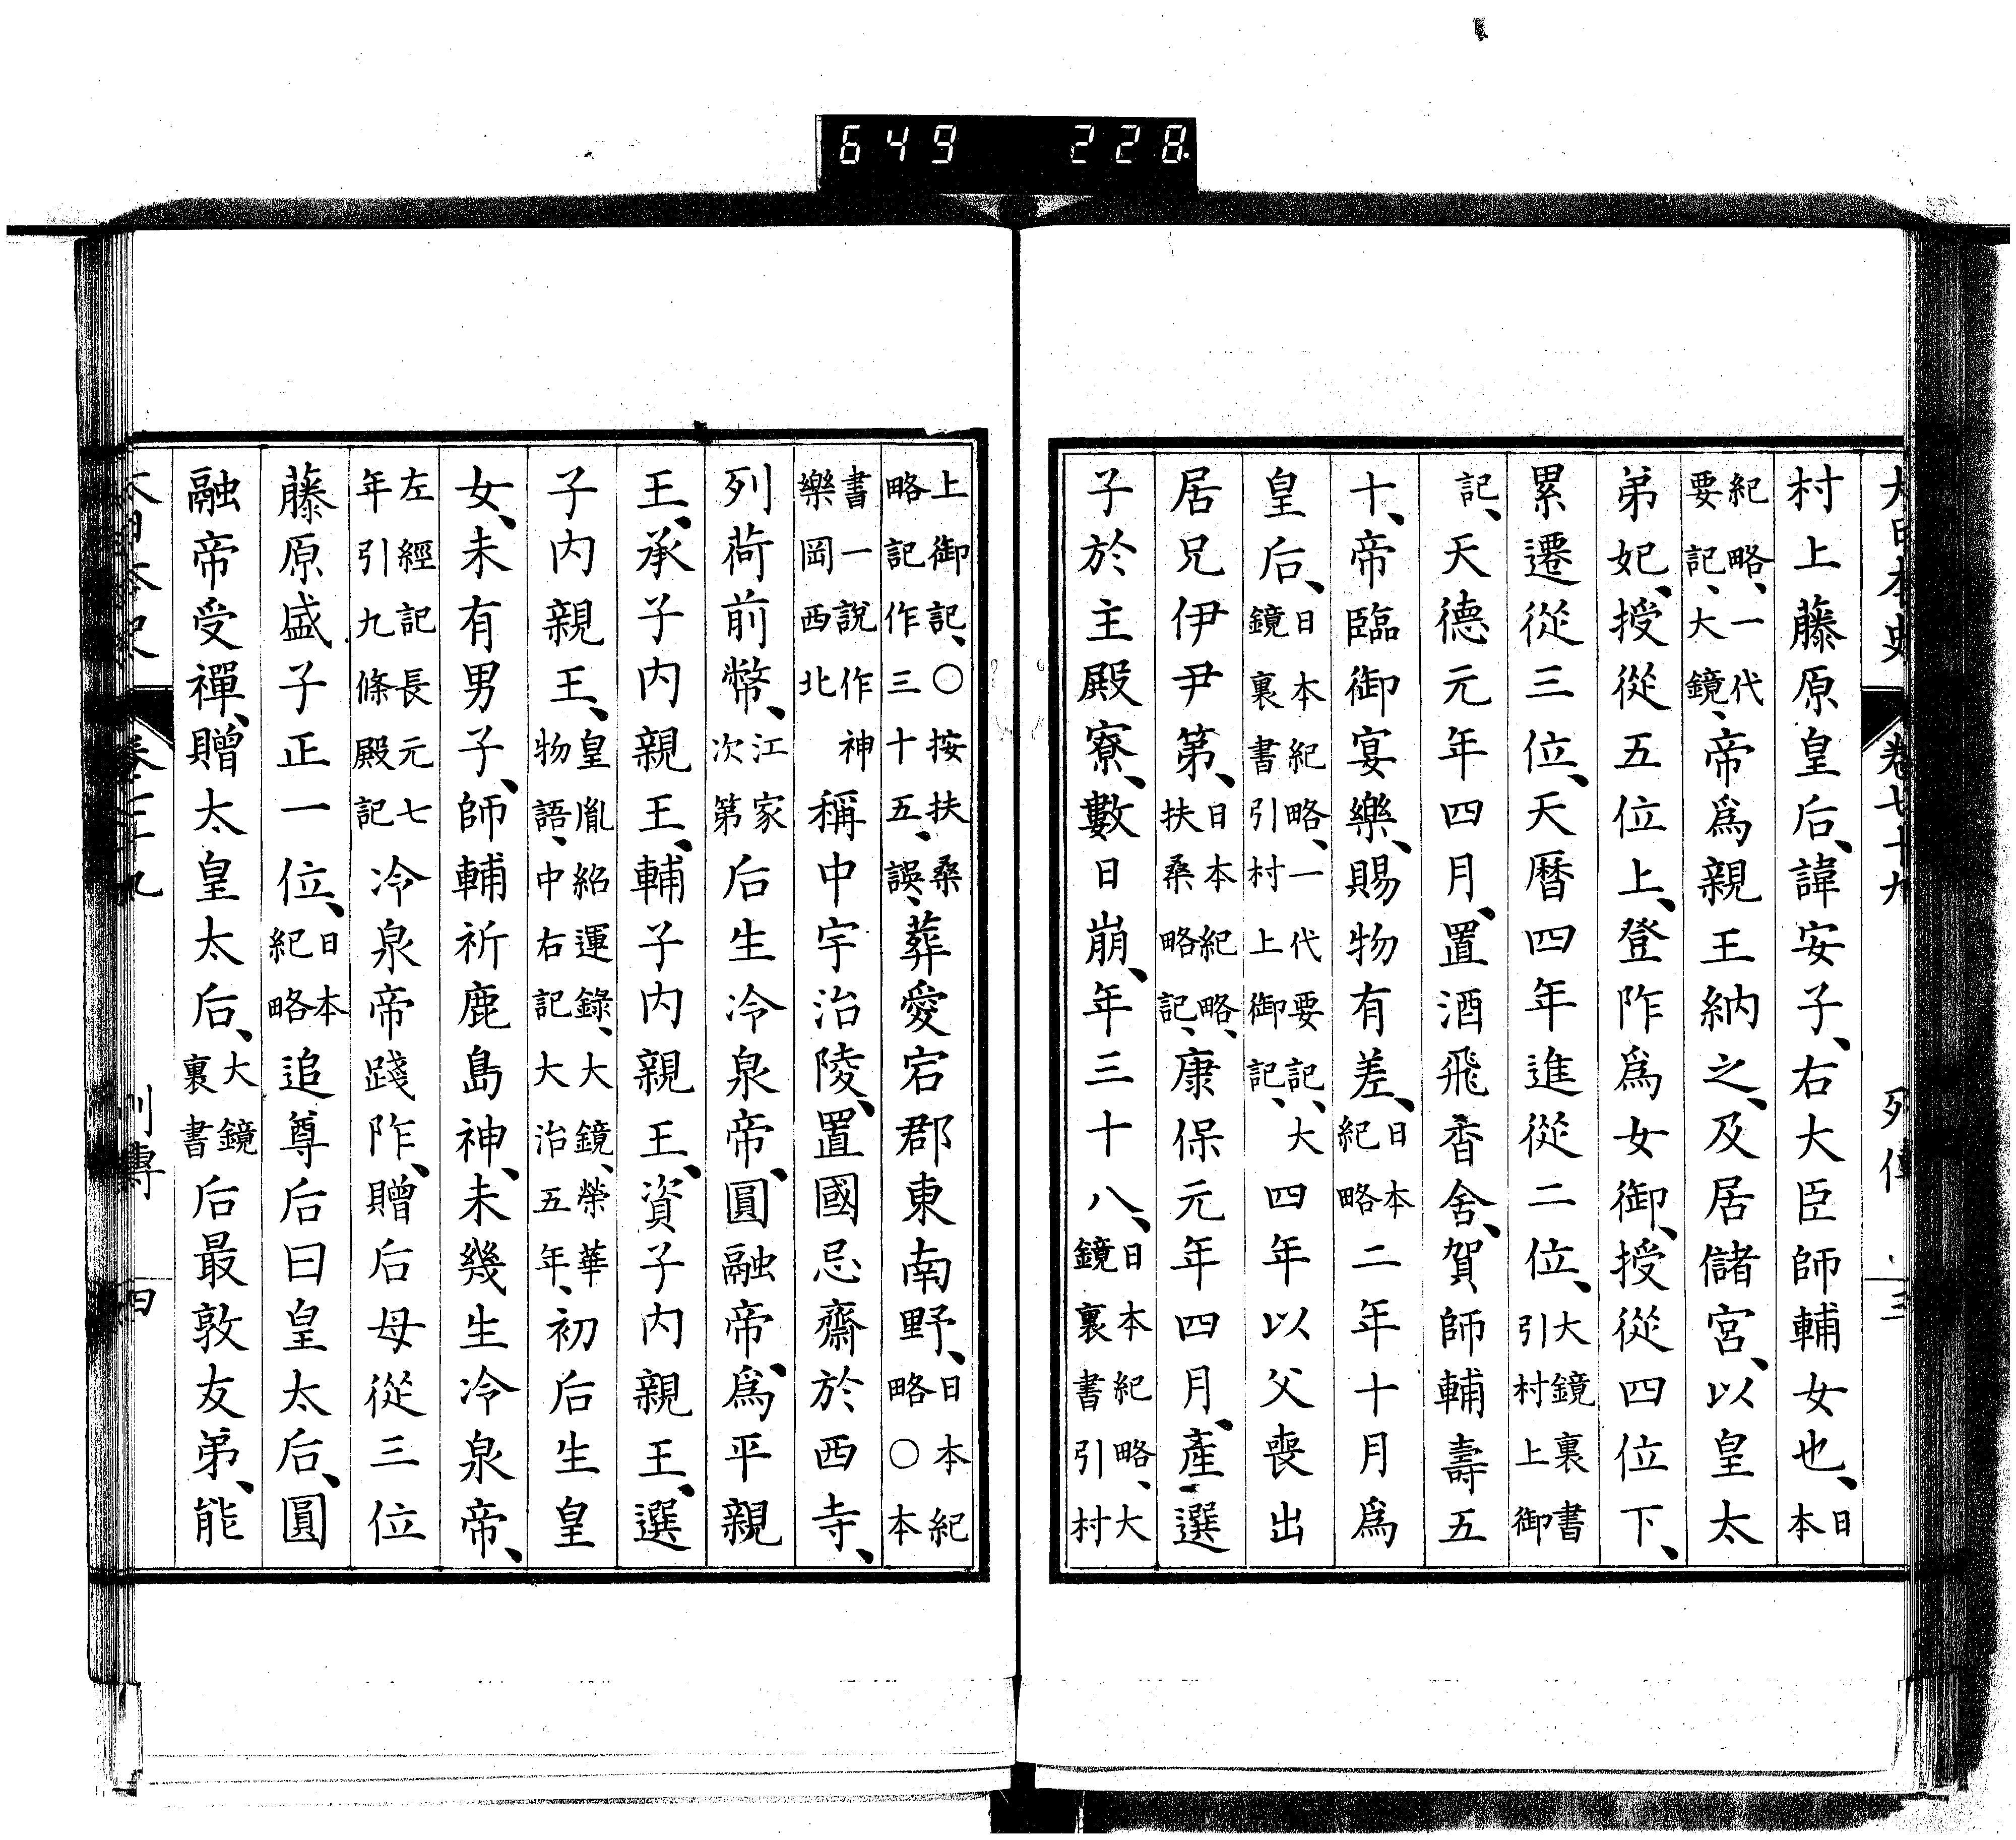 649 228
大日本史 卷七十九 列傳 三
村上藤原皇后、諱安子、右大臣師輔女也、日本
紀略、一代要記、大鏡、帝爲親王納之、及居儲宮、以皇太
弟妃、授從五位上、登阼爲女御、授從四位下、
累遷從三位、天曆四年進從二位、大鏡裏書引村上御
記、天德元年四月、置酒飛香舍、賀師輔壽五
十、帝臨御宴樂、賜物有差、日本紀略二年十月爲
皇后、日本紀略、一代要記、大鏡裏書引村上御記、四年以父喪出
居兄伊尹第、日本紀略、扶桑略記、康保元年四月、產選
子於主殿寮、數日崩、年三十八、日本紀略、大鏡裏書引村
上御記、○按扶桑略記作三十五、誤、葬愛宕郡東南野、日本紀略○本
書一說作神樂岡西北稱中宇治陵、置國忌齋於西寺、
列荷前幣、江家次第后生冷泉帝、圓融帝、爲平親
王、承子內親王、輔子內親王、資子內親王、選
子內親王、皇胤紹運錄、大鏡、榮華物語、中右記大治五年、初后生皇
女、未有男子、師輔祈鹿島神、未幾生冷泉帝、
左經記長元七年引九條殿記冷泉帝踐阼、贈后母從三位
藤原盛子正一位、日本紀略追尊后曰皇太后、圓
融帝受禪、贈太皇太后、大鏡裏書后最敦友弟、能
大日本史 卷七十九 列傳 四